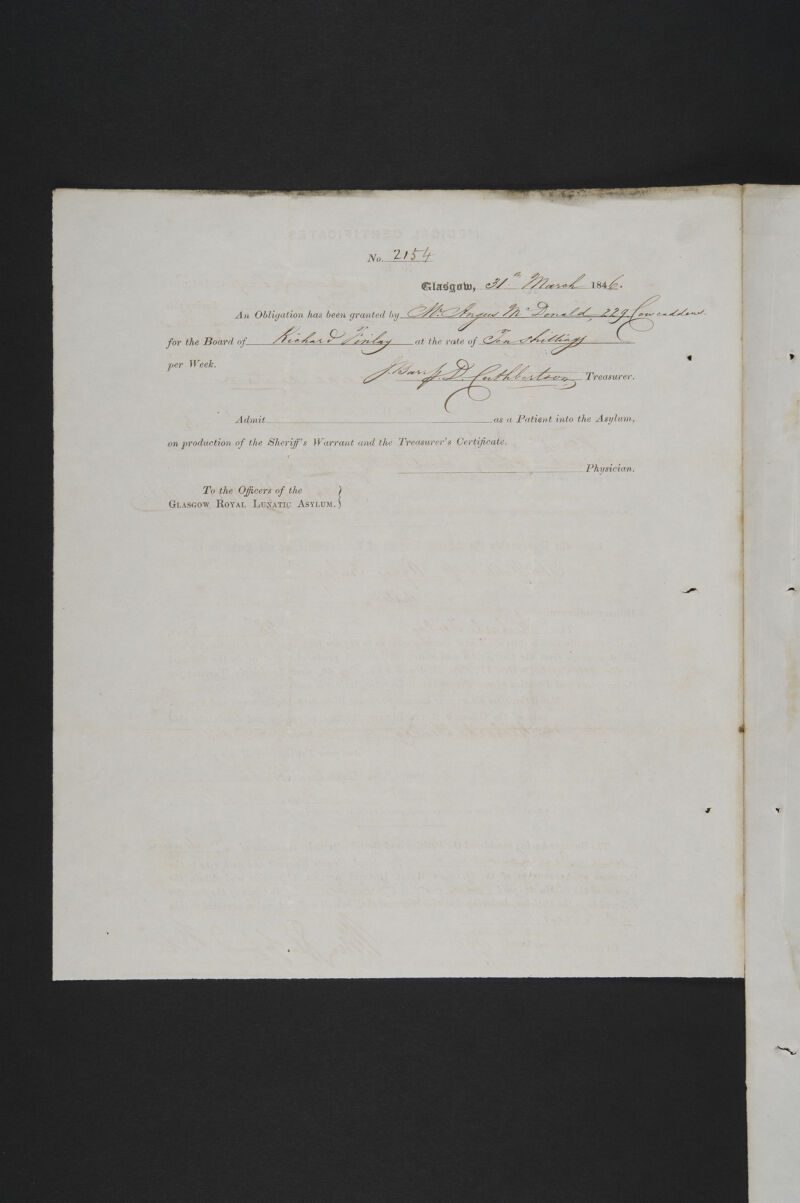 No. 2154
Glasgow, 31st March 1846.
An Obligation has been granted by Mr. Angus McDonald, 229 Cowcaddens.
for the Board of Richard Finlay at the rate of Ten Shillings
per Week.
D. Cuthbertson Treasurer.
Admit as a Patient into the Asylum,
on production of the Sheriff's Warrant and the Treasurer's Certificate.
Physician.
To the Officers of the
Glasgow Royal Lunatic Asylum.